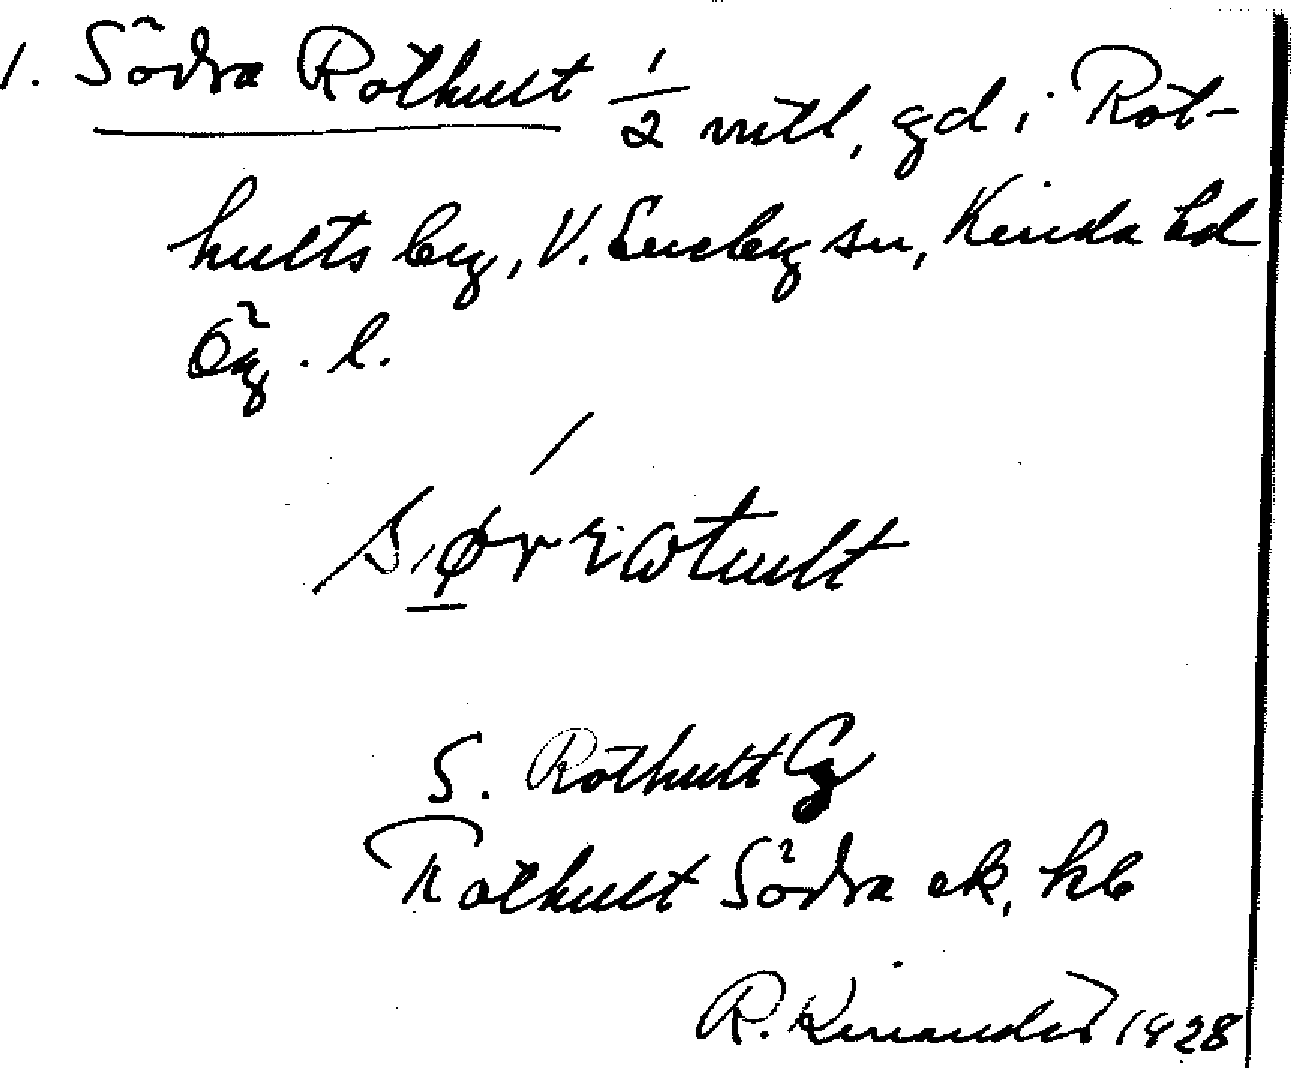 1. Södra Rothult 1/2 mtl, gd i Rot-
hults by, V. Eneby sn, Kinda hd
Ög. l.
S. Rothult Eg
Rothult Södra ek, hb
R. Kinander 1928